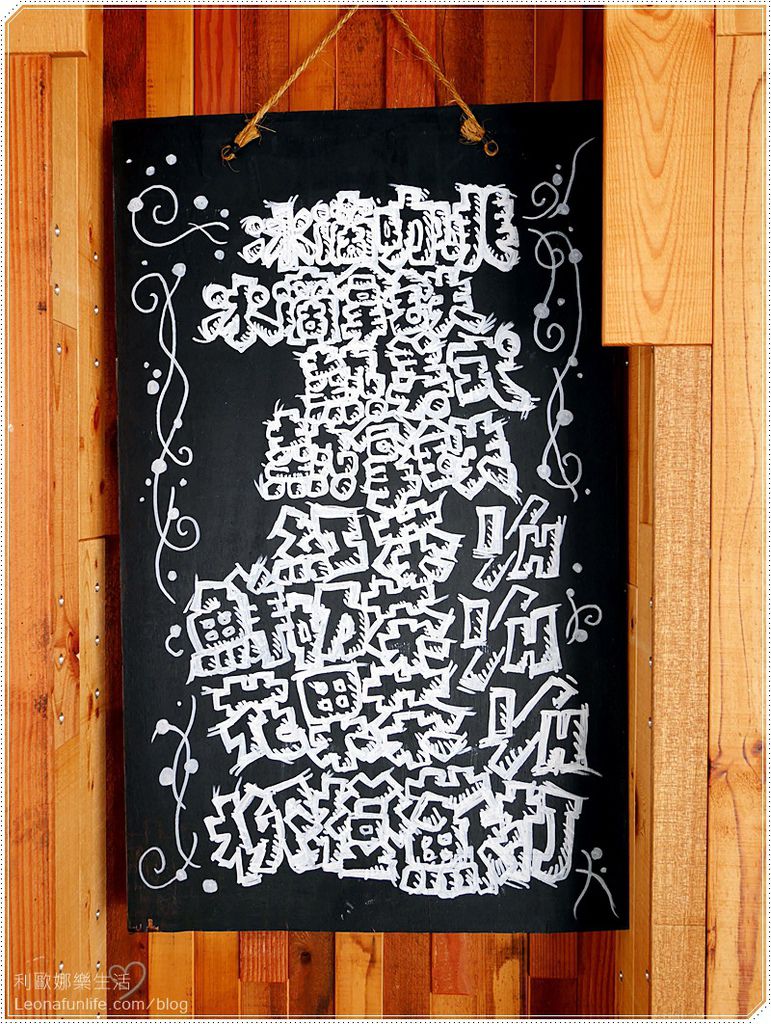 冰滴咖啡
冰滴拿鐵
熱美式
熱拿鐵
紅茶 I/H
鮮奶茶 I/H
花果茶 I/H
柳橙蘇打
利歐娜樂生活
Leonafunlife.com/blog